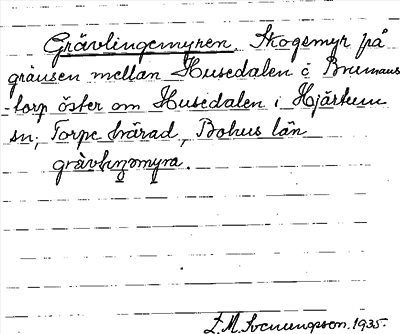 Grävlingemyren, Skogsmyr på
gränsen mellan Husedalen o Brunnans
-torp öster om Husedalen i Hjärtum
sn; Torpe härad, Bohus län
grävlinzomyra.
E. M. Svenungsson. 1935.